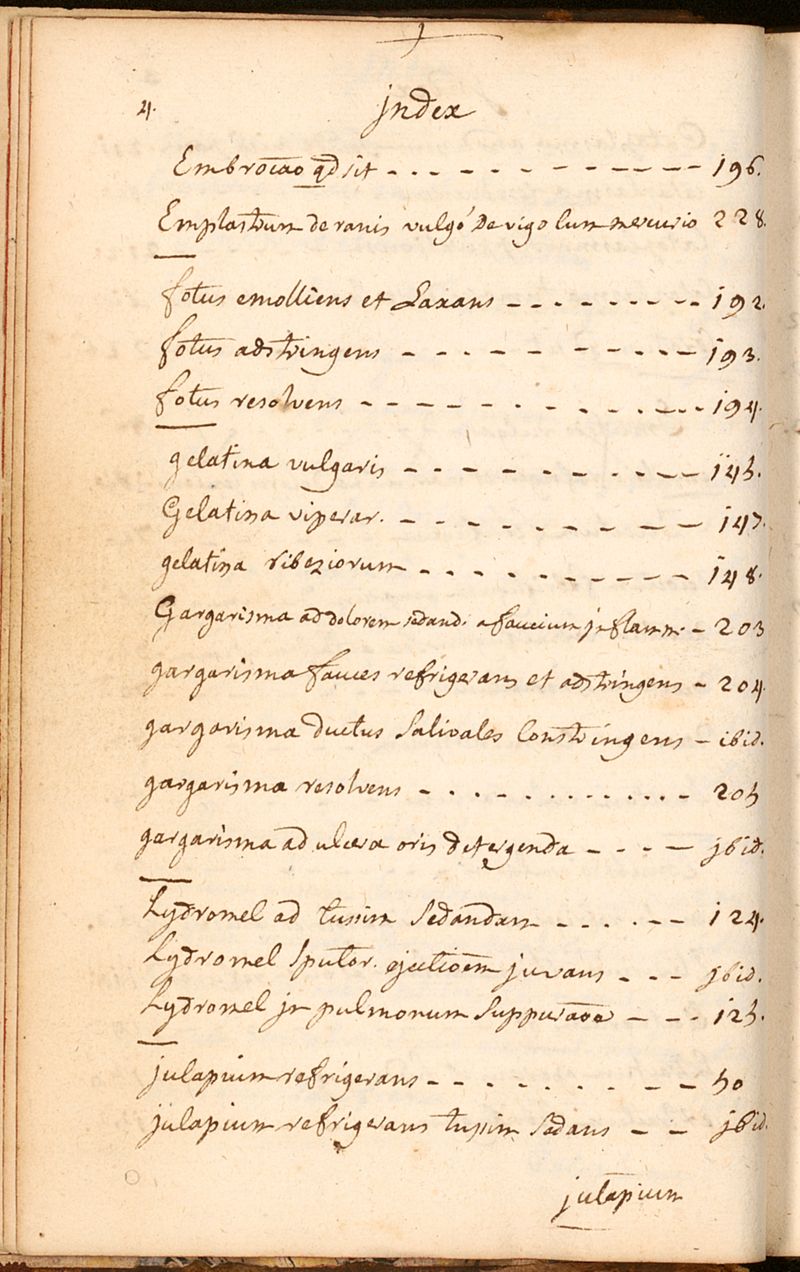 4. jndex
Embrocaõ qd sit - - - - - - - - - - 196.
Emplastrum de ranis vulgó de vigo Cum mercurio 228.
fotus emolliens et Laxans - - - - - - - - 192.
fotus adstringens - - - - - - - - - 193.
fotus resolvens - - - - - - - - - - - 194.
gelatina vulgaris - - - - - - - - - 145.
Gelatina viperar. - - - - - - - - - 147.
gelatina ribeziorum - - - - - - - - - - 148.
Gargarisma ad dolorem sedand. a faucium jnflamm. - 203
gargarisma fauces refrigerans et adstringens - 204.
gargarisma ductus Salivales Constringens - ibid.
gargarisma resolvens - - - - - - - - - - - 205
gargarisma ad ulcera oris detergenda - - - - jbid.
hydromel ad tussim Sedandam - - - - - - 124.
hydromel Sputor. ejectioēm juvans - - - jbid.
hydromel jn pulmonum Suppuraõe - - - 125.
julapium refrigerans - - - - - - - - - - 50
julapium refrigerans tussim Sedans - - jbid.
julapium